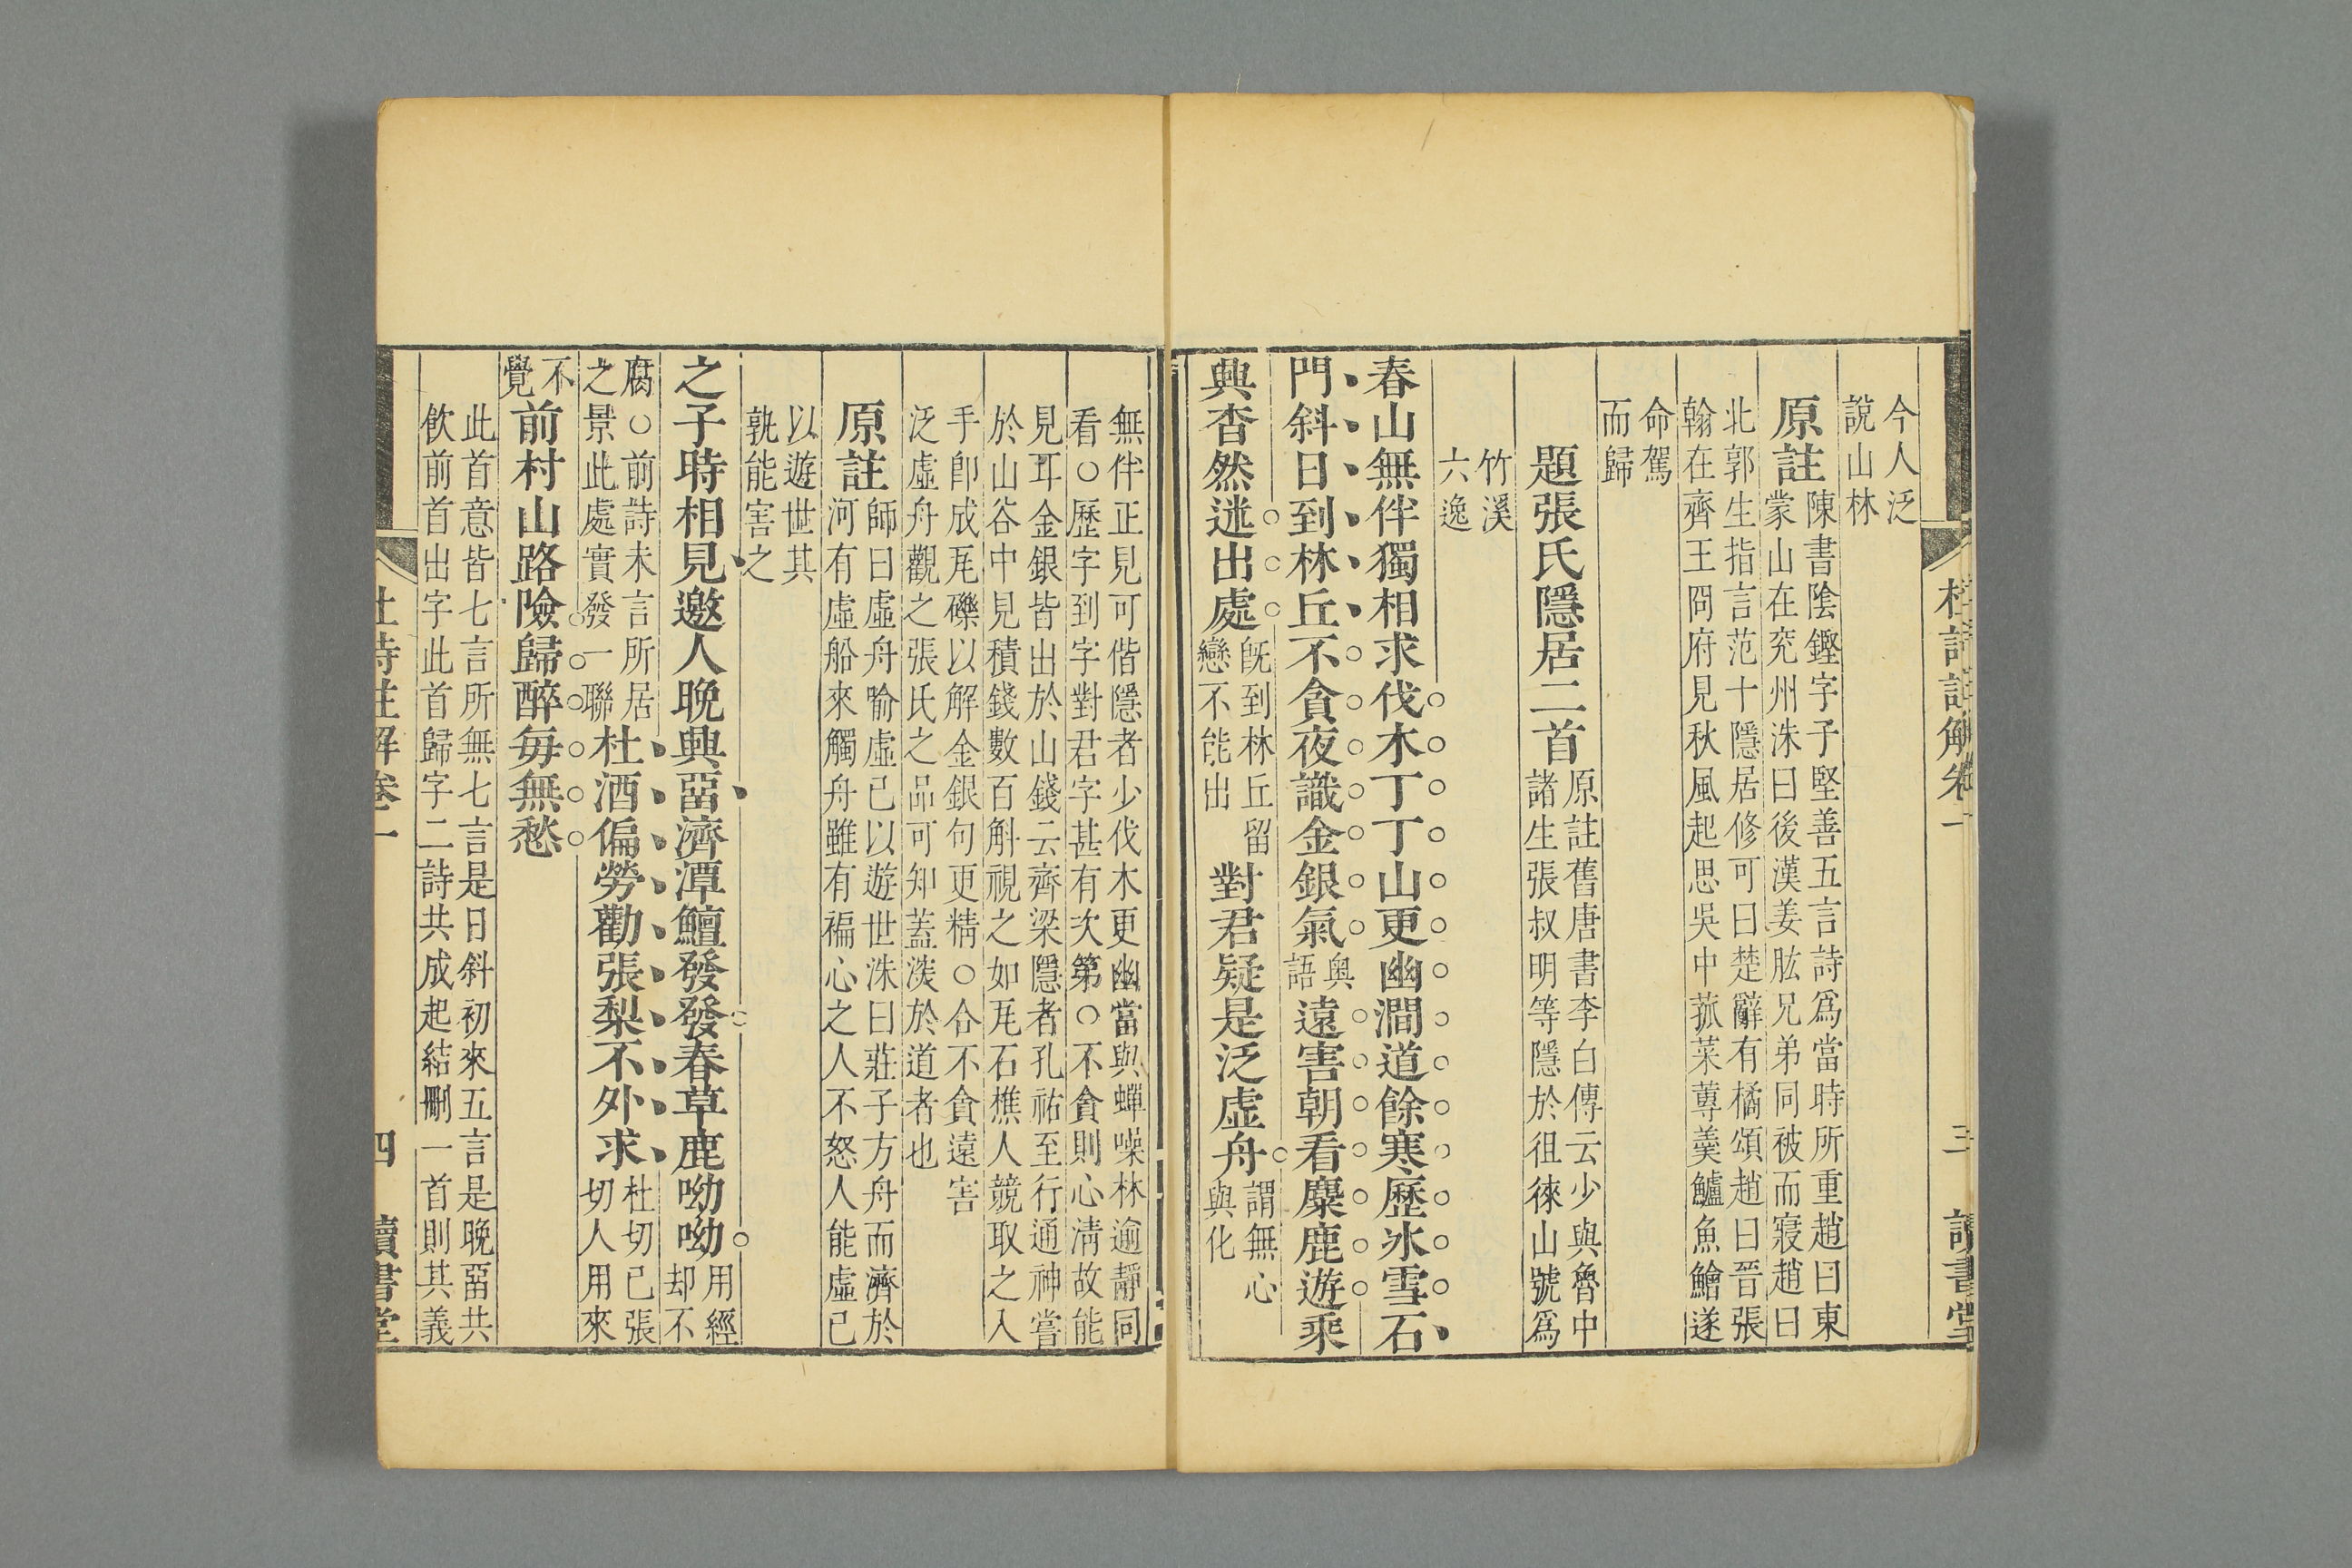 杜詩註解卷一 三 讀書堂
今人泛
說山林
原註 陳書陰鏗字子堅善五言詩爲當時所重趙曰東
蒙山在兖州洙曰後漢姜肱兄弟同被而寢趙曰
北郭生指言范十隱居修可曰楚辭有橘頌趙曰晉張
翰在齊王冏府見秋風起思吳中菰菜蓴羹鱸魚鱠遂
命駕
而歸
題張氏隱居二首 原註舊唐書李白傳云少與魯中
諸生張叔明等隱於徂徠山號爲
竹溪
六逸
春山無伴獨相求伐木丁丁山更幽澗道餘寒歷氷雪石
門斜日到林丘不貪夜識金銀氣 奥語 遠害朝看麋鹿遊乘
興杳然迷出處 旣到林丘留戀不能出 對君疑是泛虛舟 謂無心與化
無伴正見可偕隱者少伐木更幽當與蟬噪林逾靜同
看○歷字到字對君字甚有次第○不貪則心淸故能
見耳金銀皆出於山錢云齊梁隱者孔祐至行通神嘗
於山谷中見積錢數百斛視之如瓦石樵人競取之入
手卽成瓦礫以解金銀句更精○合不貪遠害
泛虛舟觀之張氏之品可知蓋淡於道者也
原註 師曰虛舟喻虛已以遊世洙曰莊子方舟而濟於
河有虛船來觸舟雖有褊心之人不怒人能虛已
以遊世其
孰能害之
之子時相見邀人晚興畱濟潭鱣發發春草鹿呦呦 用經却不
腐○前詩未言所居之景此處實發一聯 杜酒偏勞勸張梨不外求 杜切已張切人用來
不覺 前村山路險歸醉每無愁
此首意皆七言所無七言是日斜初來五言是晚畱共
飲前首出字此首歸字二詩共成起結刪一首則其義
杜詩註解卷一 四 讀書堂